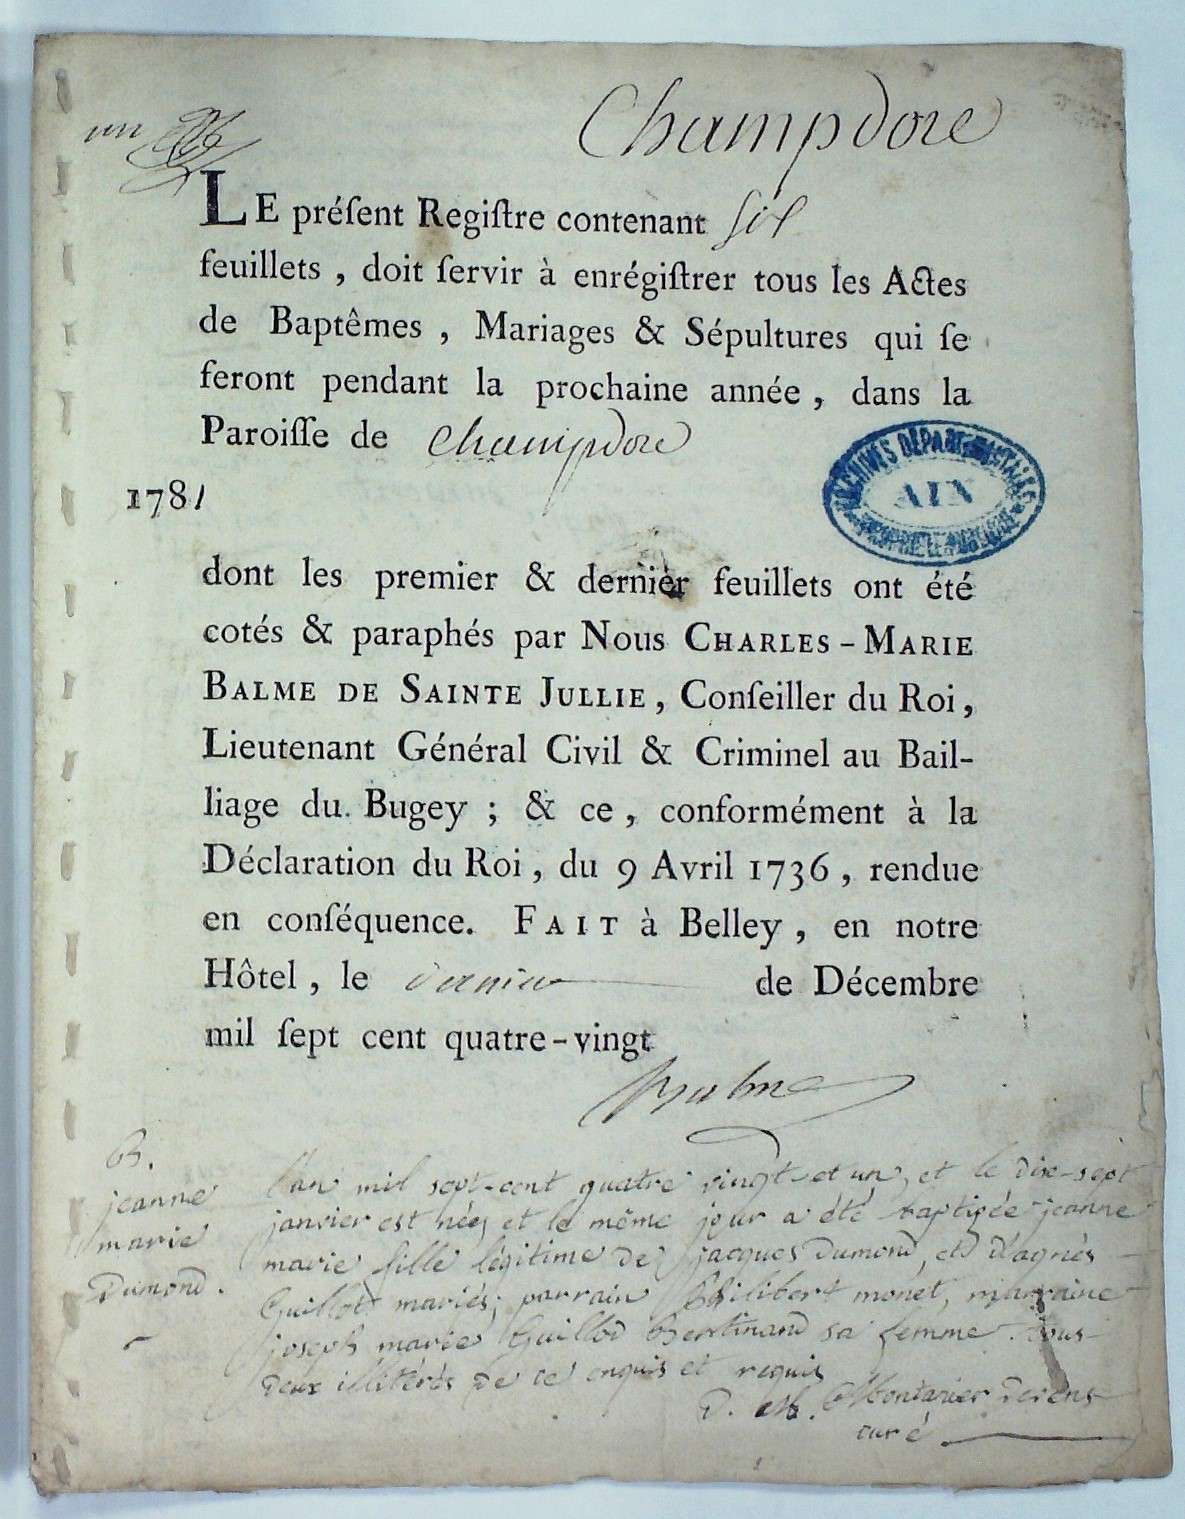 un
Champdore
LE préſent Regiſtre contenant six
feuillets, doit ſervir à enrégiſtrer tous les Actes
de Baptêmes, Mariages & Sépultures qui ſe
feront pendant la prochaine année, dans la
Paroiſſe de champdore
1781
ARCHIVES DÉPARTEMENTALES
AIN
dont les premier & dernier feuillets ont été
cotés & paraphés par Nous CHARLES-MARIE
BALME DE SAINTE JULLIE, Conſeiller du Roi,
Lieutenant Général Civil & Criminel au Bail-
liage du Bugey; & ce, conformément à la
Déclaration du Roi, du 9 Avril 1736, rendue
en conſéquence. FAIT à Belley, en notre
Hôtel, le dernier de Décembre
mil ſept cent quatre-vingt
Balme
B.
jeanne
marie
Dumond.
l'an mil sept-cent quatre vingt-et un, et le dix-sept
janvier est née, et le même jour a été baptisée jeanne
marie fille légitime de jacques Dumond, et d'agnès
Guillot mariés; parrain Philibert monet, marraine
joseph marie Guillod Bertinand sa femme. tous-
deux illitérés de ce enquis et requis
D. M. Montanier Derens
curé